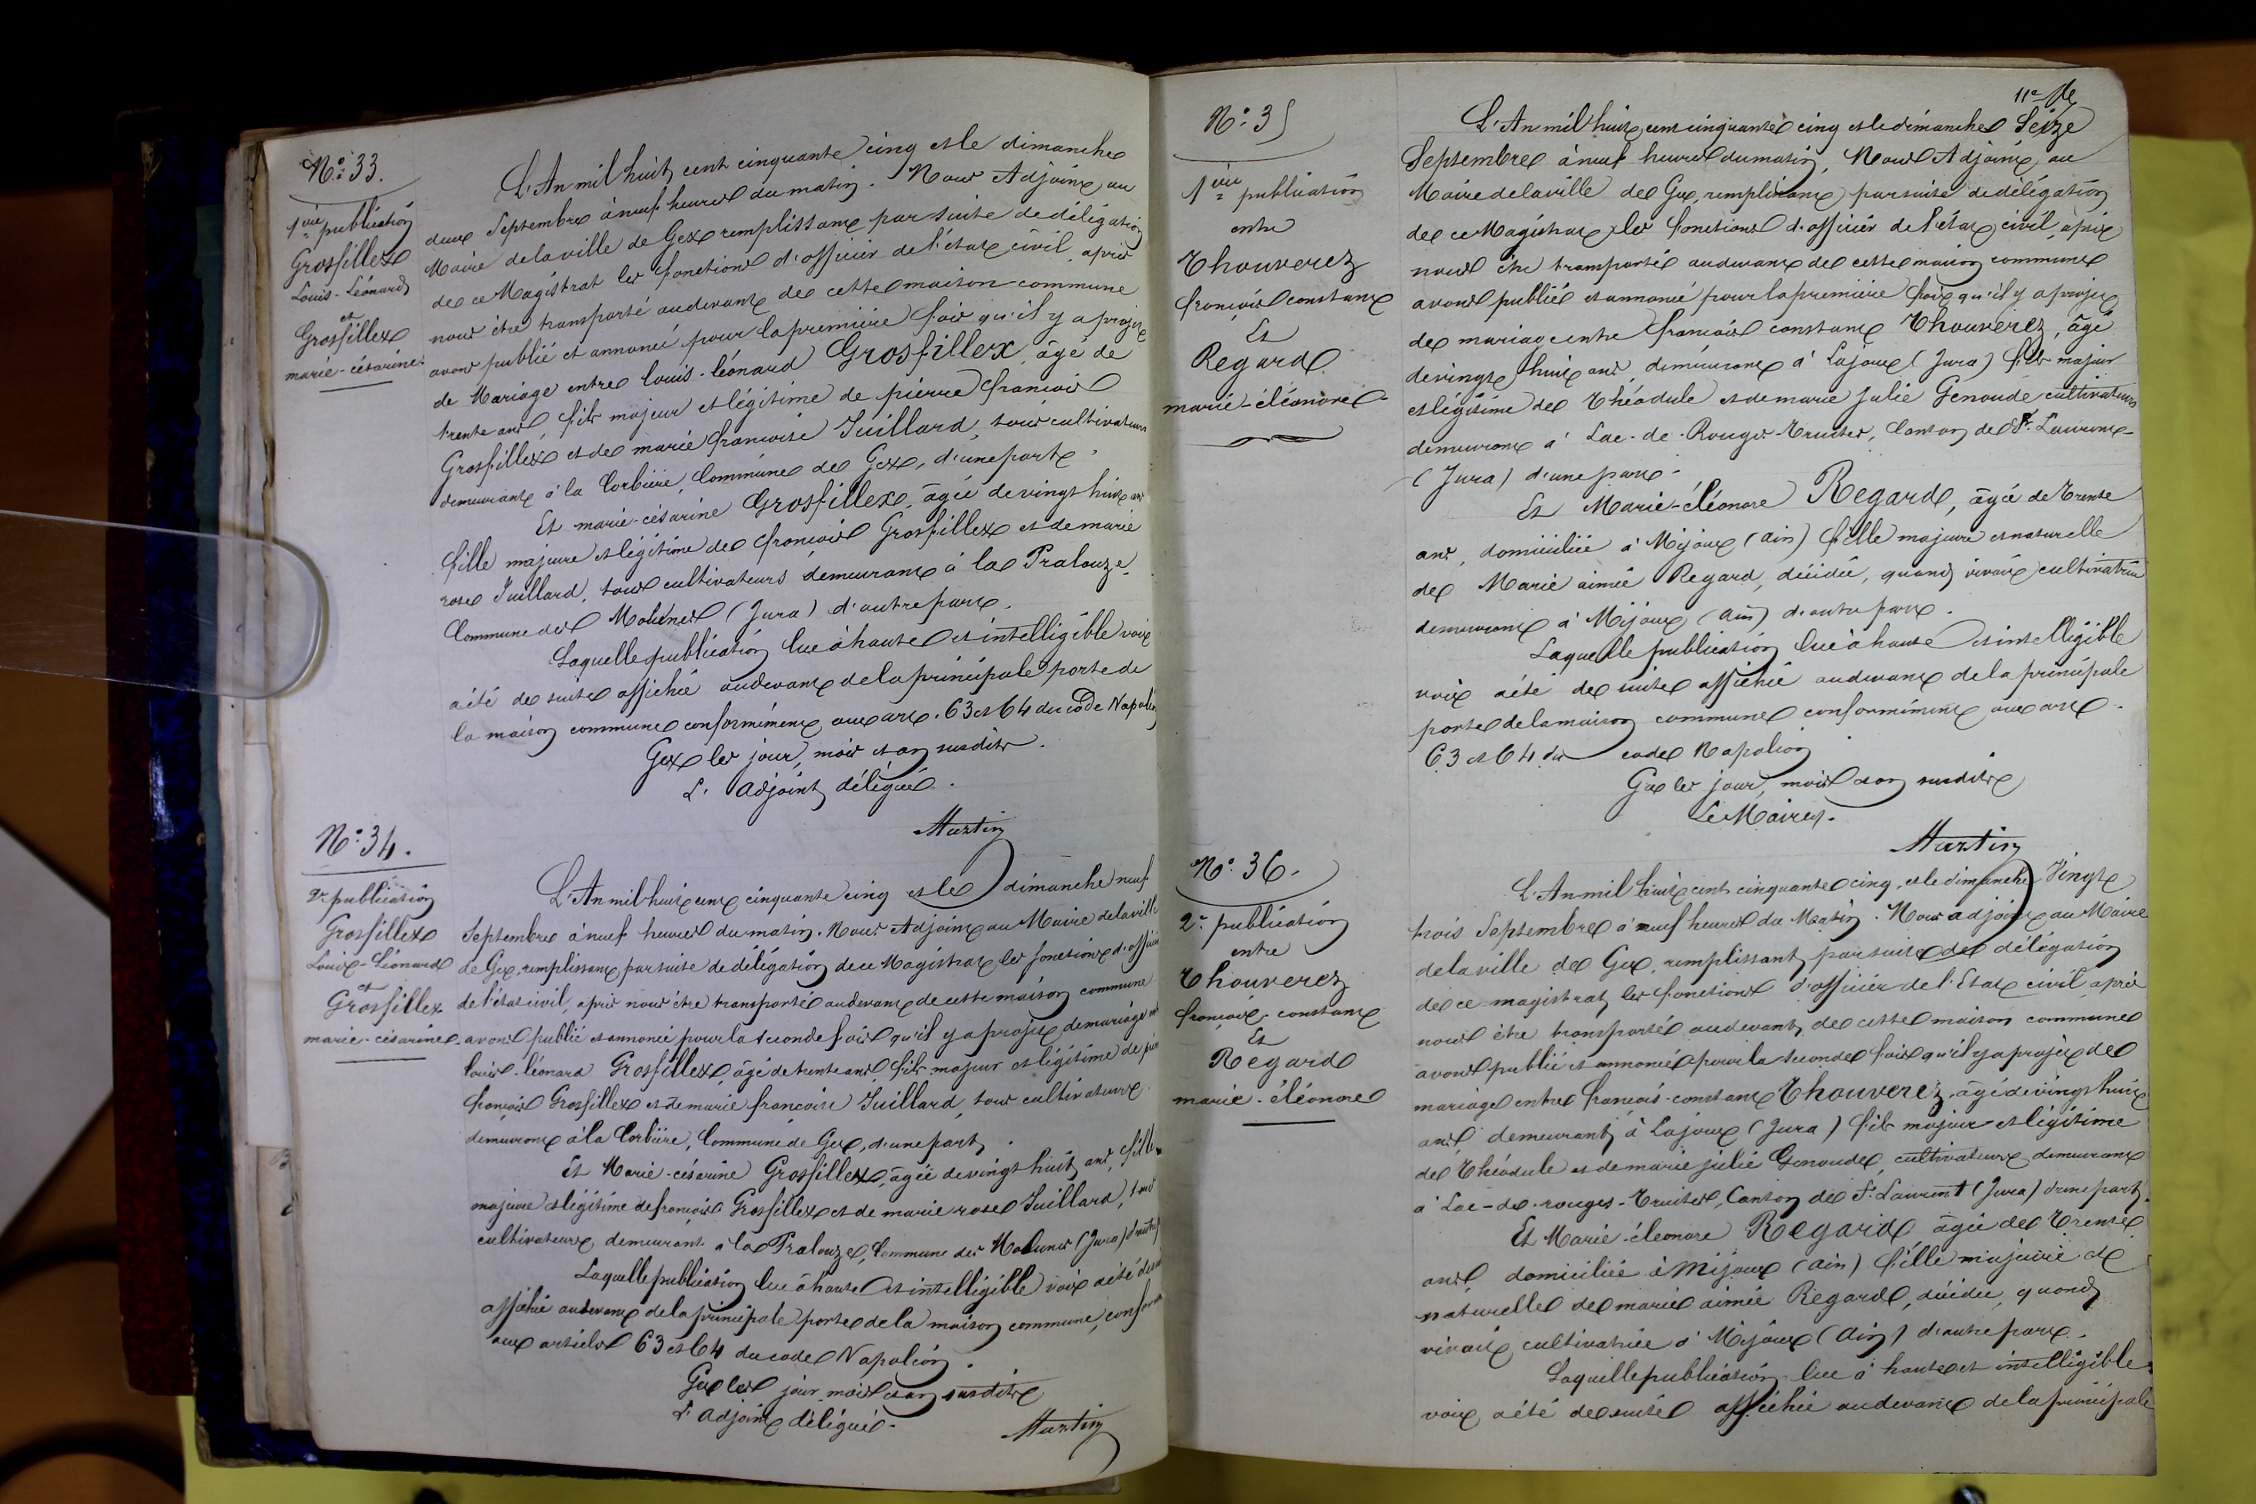 N.º 33.
1ère publication
Grosfillex
Louis-Léonard
et
Grosfillex
marie-césarine.
L'An mil huit cent cinquante cinq et le dimanche
deux Septembre à neuf heures du matin. Nous Adjoint au
Maire de la ville de Gex remplissant par suite de délégation
de ce Magistrat les fonctions d'officier de l'état civil, après
nous être transporté au devant de cette maison commune
avons publié et annoncé pour la première fois qu'il y a projet
de Mariage entre louis-léonard Grosfillex, âgé de
trente ans, fils majeur et légitime de pierre françois
Grosfillex et de marie françoise Juillard, tous cultivateurs
demeurant à la Corbière, Commune de Gex, d'une part.
Et marie-césarine Grosfillex, âgée de vingt huit ans
fille majeure et légitime de françois Grosfillex et de marie
rose Juillard, tous cultivateurs demeurant à la Pralouze,
Commune des Molunes (Jura) d'autre part.
Laquelle publication lue à haute et intelligible voix
a été de suite affichée au devant de la principale porte de
la maison commune conformément aux art. 63 et 64 du code Napoléon
Gex les jour, mois et an susdits.
L'adjoint délégué.
Martin
N.º 34.
2e publication
Grosfillex
Louis-Léonard
et
Grosfillex
marie-césarine
L'An mil huit cent cinquante cinq et le dimanche neuf
Septembre à neuf heures du matin. Nous Adjoint au Maire de la ville
de Gex, remplissant par suite de délégation de ce Magistrat les fonctions d'officier
de l'état civil, après nous être transporté au devant de cette maison commune
avons publié et annoncé pour la seconde fois qu'il y a projet de mariage
louis-léonard Grosfillex, âgé de trente ans, fils majeur et légitime de
françois Grosfillex et de marie françoise Juillard, tous cultivateurs
demeurant à la Corbière, Commune de Gex, d'une part.
Et Marie-césarine Grosfillex, âgée de vingt huit ans, fille
majeure et légitime de françois Grosfillex et de marie rose Juillard, tous
cultivateurs demeurant à la Pralouze, Commune des Molunes (Jura)
Laquelle publication lue à haute et intelligible voix a été
affichée au devant de la principale porte de la maison commune,
aux articles 63 et 64 du code Napoléon.
Gex les jour mois et an susdits
L'adjoint délégué.
Martin
N.º 35
1ère publication
entre
Thouverez
françois constant
Et
Regard
marie-éléonore
11e
L'An mil huit cent cinquante cinq et le dimanche Seize
Septembre à neuf heures du matin, Nous Adjoint au
Maire de la ville de Gex, remplissant par suite de délégation
de ce Magistrat les fonctions d'officier de l'état civil, après
nous être transporté au devant de cette maison commune
avons publié et annoncé pour la première fois qu'il y a projet
de mariage entre françois constant Thouverez, âgé
de vingt huit ans, demeurant à Lajoux (Jura) fils majeur
et légitime de Théodule et de marie Julie Genoude cultivateurs
demeurant à Lac-de-Rouges-Truites, Canton de St. Laurent
(Jura) d'une part.
Et Marie-éléonore Regard, âgée de Trente
ans, domiciliée à Mijoux (ain) fille majeure et naturelle
de Marie aimée Regard, décédée, quand vivait cultivatrice
demeurant à Mijoux (ain) d'autre part.
Laquelle publication lue à haute et intelligible
voix a été de suite affichée au devant de la principale
porte de la maison commune conformément aux art.
63 et 64 du code Napoléon
Gex les jour, mois et an susdits
Le Maire.
Martin
N.º 36.
2e publication
entre
Thouverez
françois-constant
Et
Regard
marie-éléonore
L'An mil huit cent cinquante cinq, et le dimanche Vingt
trois Septembre à neuf heures du Matin. Nous adjoint au Maire
de la ville de Gex, remplissant par suite de délégation
de ce magistrat les fonctions d'officier de l'Etat civil, après
nous être transporté au devant de cette maison commune
avons publié et annoncé pour la seconde fois qu'il y a projet de
mariage entre françois-constant Thouverez, âgé de vingt huit
ans demeurant à Lajoux (Jura) fils majeur et légitime
de Théodule et de marie julie Genoude, cultivateurs demeurant
à Lac-de-rouges-Truites, Canton de St. Laurent (Jura) d'une part.
Et Marie-éléonore Regard âgée de Trente
ans, domiciliée à Mijoux (ain) fille majeure et
naturelle de marie aimée Regard, décédée, quand
vivait cultivatrice à Mijoux (Ain) d'autre part.
Laquelle publication lue à haute et intelligible
voix a été de suite affichée au devant de la principale